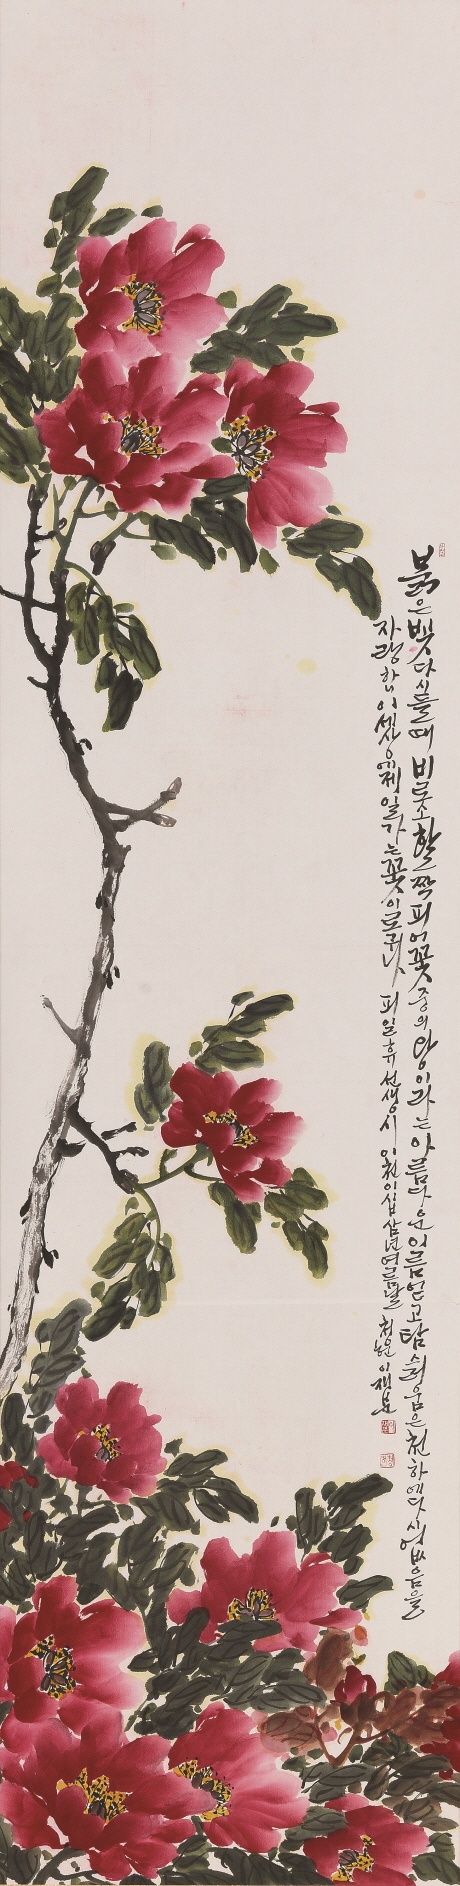 붉은빛 다 시들 때 비로소 활짝 피어 꽃 중의 왕이라는 아름다운 이름 얻고 탐스러움은 천하에 다시 없음을
자랑하니 이 세상에 제일가는 꽃이로구나 피일휴 선생 시 이천이십삼년 여름날 청운 이재분